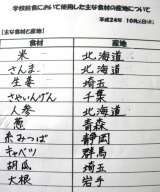 学校給食において使用した主な食材の産地について
平成24年 10月
【主な食材と産地】
食材 産地
米 北海道
さんま 北海道
生姜 埼玉
さやいんげん 千葉
人参 北海道
葱 青森
糸みつば 静岡
キャベツ 群馬
胡瓜 埼玉
大根 岩手